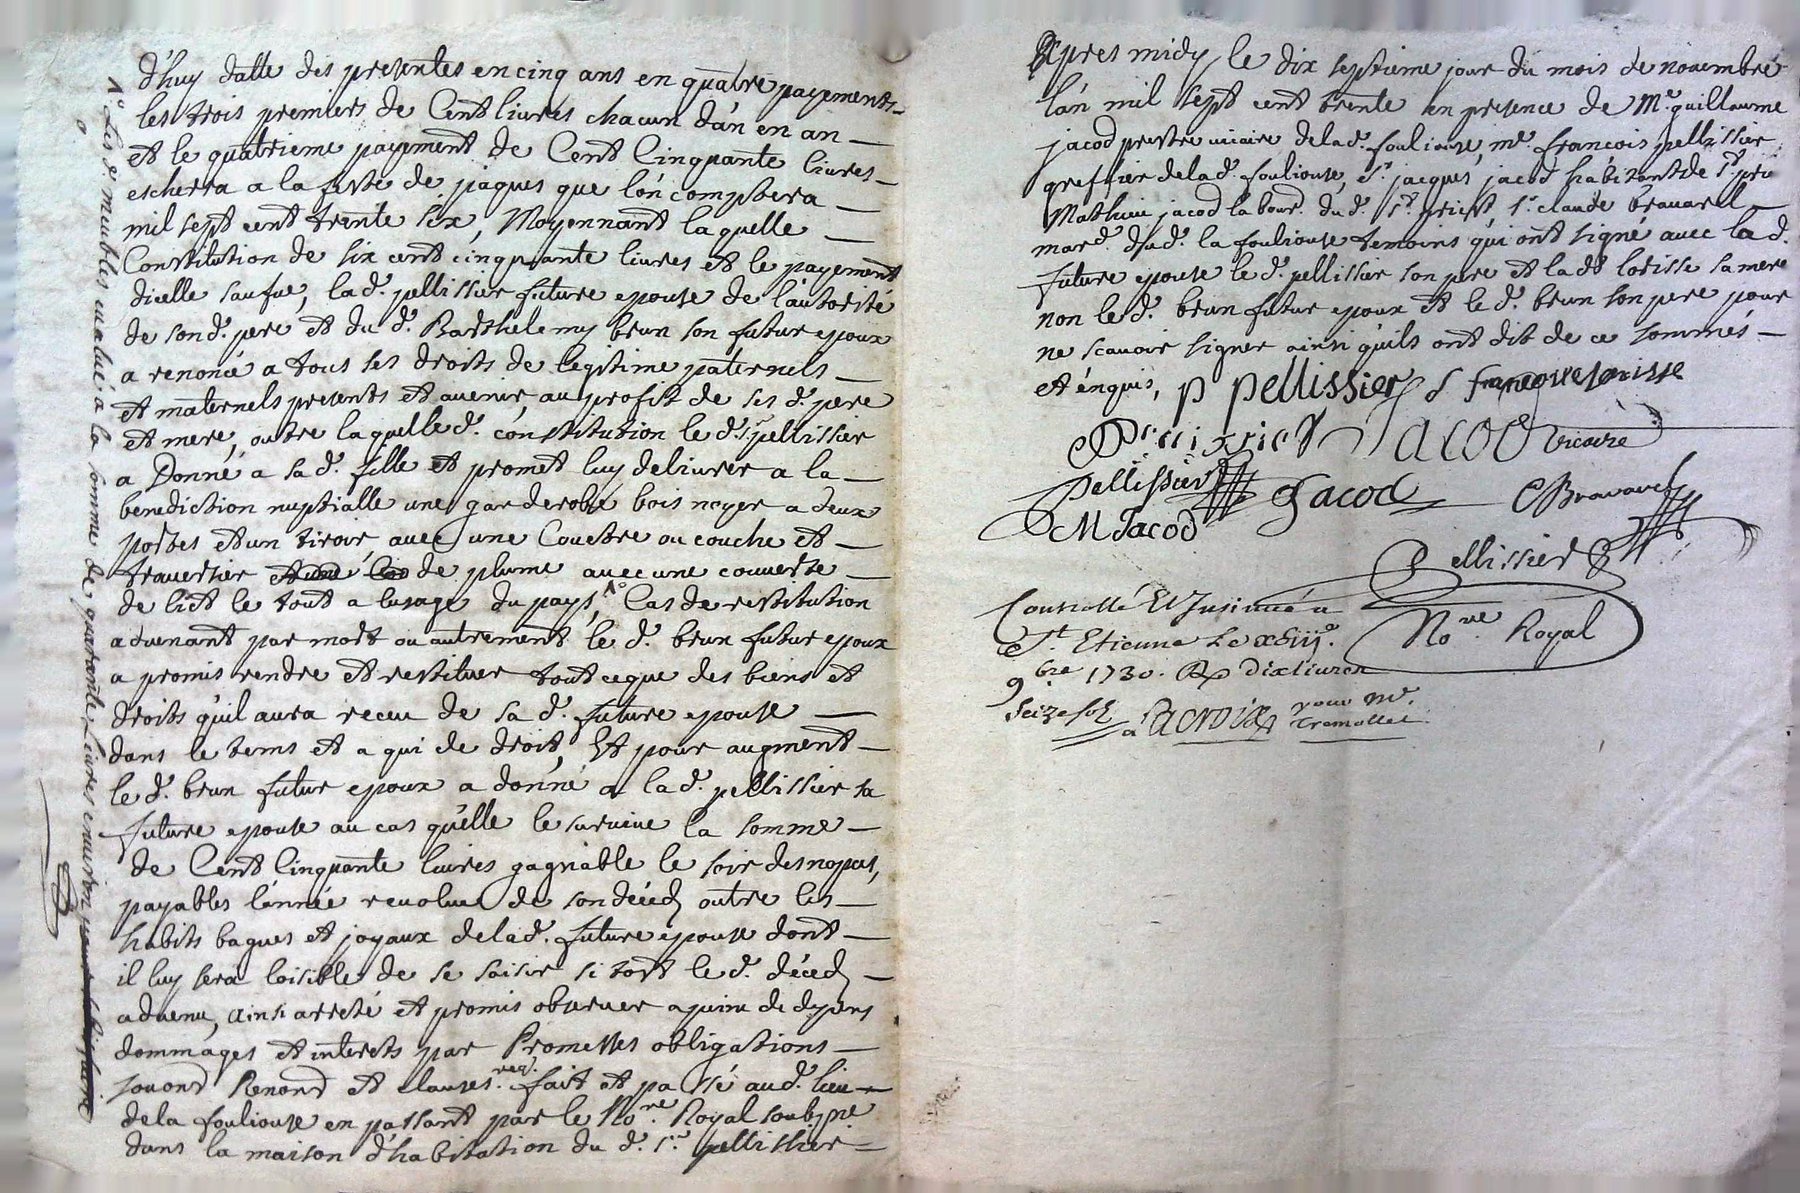 d'huy datte des presentes en cinq ans en quatre payements
les trois premiers de Cent livres chacun d'an en an
et le quatrieme payement de Cent Cinquante livres
escherra a la feste de jaques que l'on comptera
mil sept cent trente six, Moyennant laquelle
Constitution de six cent cinquante livres et le payement
dicelle saufue, la d. pellissier future epouse de l'autorité
de son d. pere et du d. Barthelemy brun son futur epoux
a renoncé a tous ses droits de legitime paternels
et maternels presents et avenir, au profit de ses d. pere
et mere, outre laquelle d. constitution le d. sr. pellissier
a Donné a sa d. fille et promet luy delivrer a la
benediction nuptialle une garderobe bois noyer a deux
portes et un tiroir, avec une Couetre ou couche et
traversier de plume avec une couverte
de lict le tout a lusage du pays, 1° Cas de restitution
advenant par mort ou autrement le d. brun futur epoux
a promis rendre et restituer tout ce que des biens et
droits qu'il aura receu de sa d. future epouse
dans le tems et a qui de droit, Et pour augment
le d. brun futur epoux a donné a la d. pellissier sa
future epouse au cas qu'elle le survive la somme
de Cent Cinquante livres gagnable le soir des nopces,
payables l'année revolue de son décéd outre les
habits bagues et joyaux de la d. future epouse dont
il luy sera loisible de se saisir si tost le d. décéd
advenu, ainsi arresté et promis observer a peine de depens
dommages et interets par Promesses obligations
soumond Renond et clauses. req. fait et passé au d. lieu
de la fouliouse en passant par le No.re Royal soubzné
dans la maison d'habitation du d. sr. pellissier
1° Les d. meubles evalué a la somme de quarante Livres environ
Apres midy le dix septieme jour du mois de novembre
l'an mil sept cent trente en presence de Me. guillaume
jacod prestre vicaire de la d. fouliouse, me. francois pellissier
greffier de la d. fouliouse, sr. jacques jacod habitant de St. prie
Mathieu jacod labour. du d. St. priest, sr. claude bravard
mard. du d. la fouliouse temoins qui ont signé avec la d.
future epouse le d. pellissier son pere et la de lorisse sa mere
non le d. brun futur epoux et le d. brun son pere pour
ne scavoir signer ainsi qu'ils ont dit de ce sommés
et enquis, p pellissier f francoise lorisse
Jacod vicaire
Pellissier Jacod C Bravard
M Jacod
Pellissier
No.re Royal
Controllé Et Insinué a
St. Etienne Le xviij.e
9bre 1730. R dix livres
seize sols
Lacroix pour mr.
Tremollet